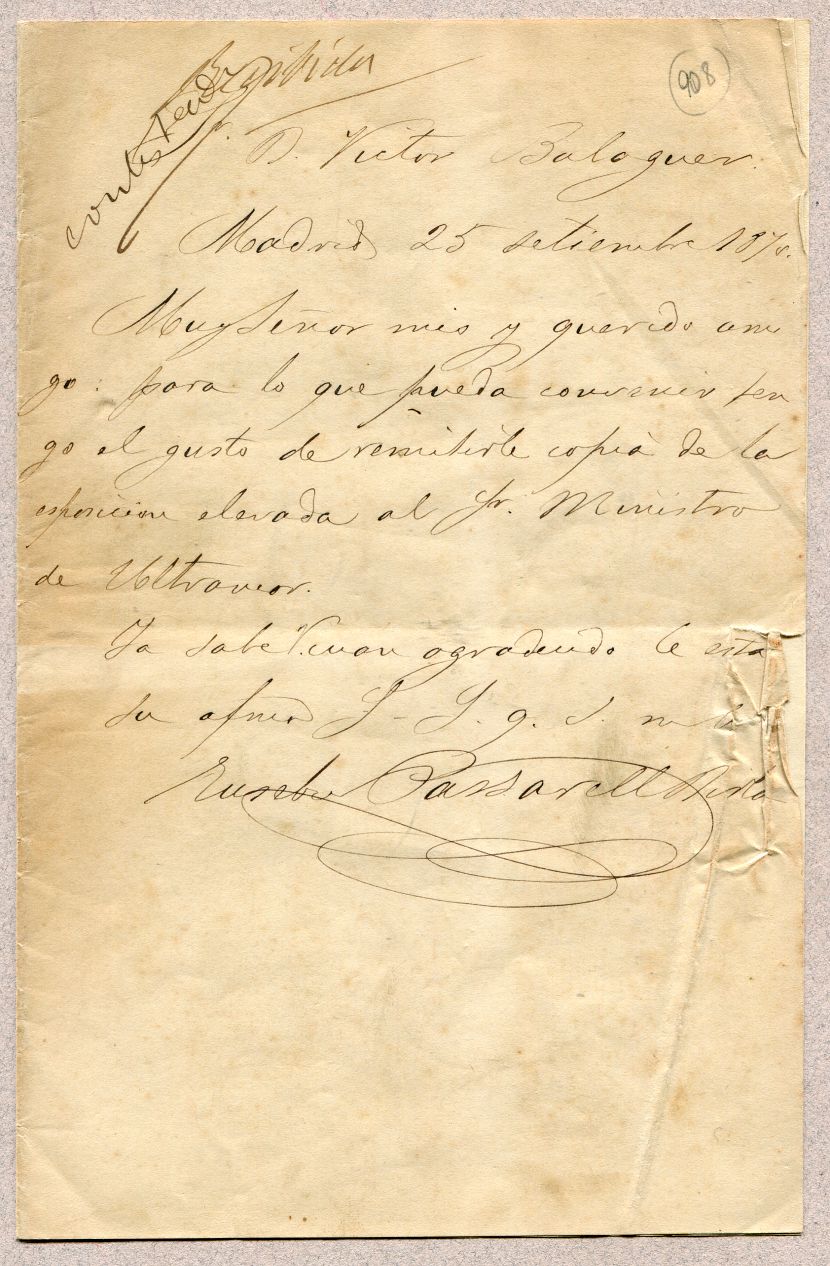 Recibida
contestada
908
Sr. D. Victor Balaguer.
Madrid 25 setiembre 1878.
Muy Señor mio y querido ami
go: para lo que pueda convenir ten
go el gusto de remitirle copia de la
esposicion elevada al Sr. Ministro
de Ultramar.
Ya sabe V. cuan agradecido le esta
su afmo S. S. q. s. m. b.
Eusebio Passarell